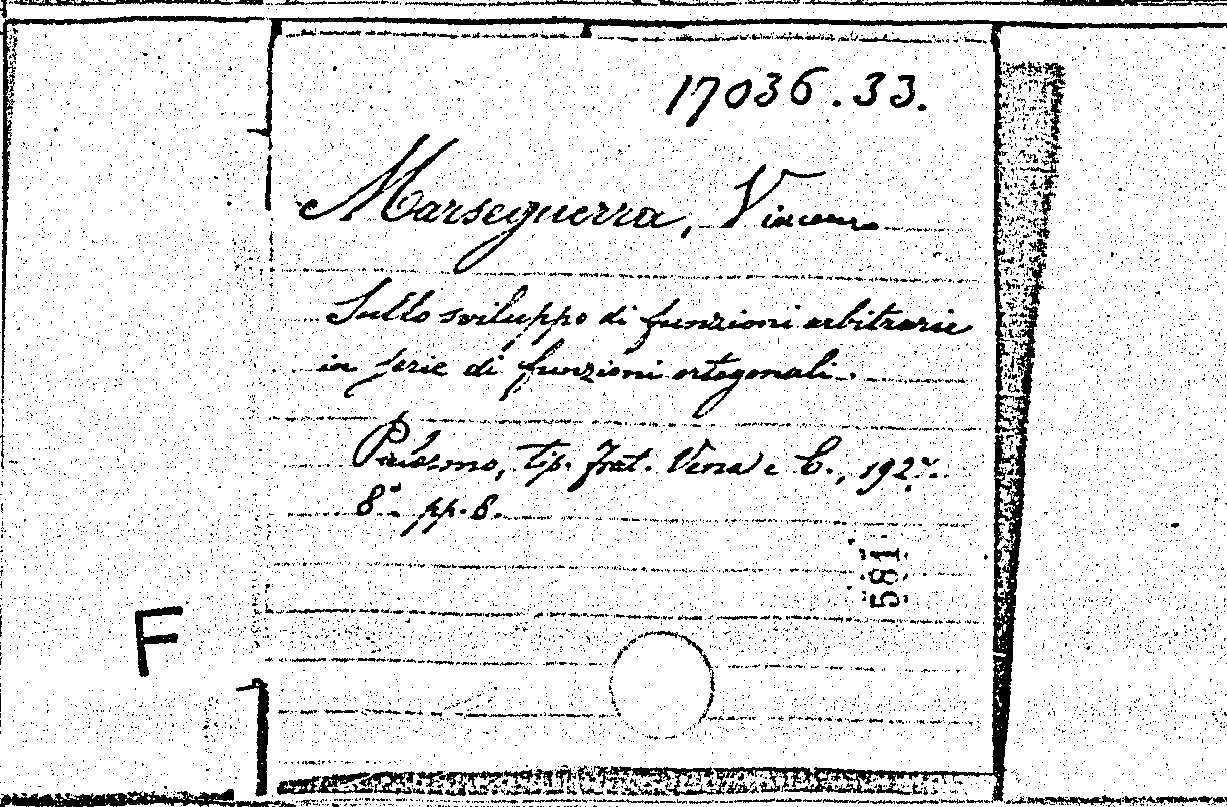 17036.33.
Marseguerra, Vincenzo
Sullo sviluppo di funzioni arbitrarie
in serie di funzioni ortogonali.
Palermo, tip. frat. Vena e C., 1927.
8° pp. 8.
581
F